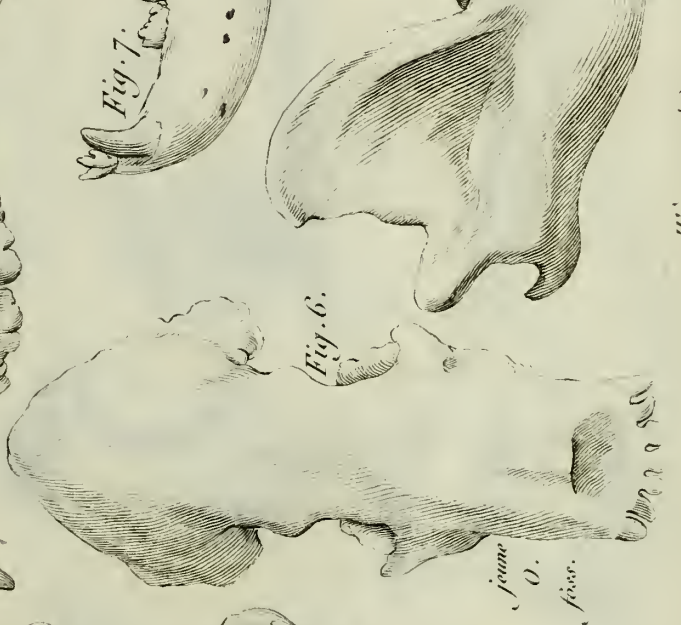 Fig. 7.
Fig. 6.
jeune
O.
foss.